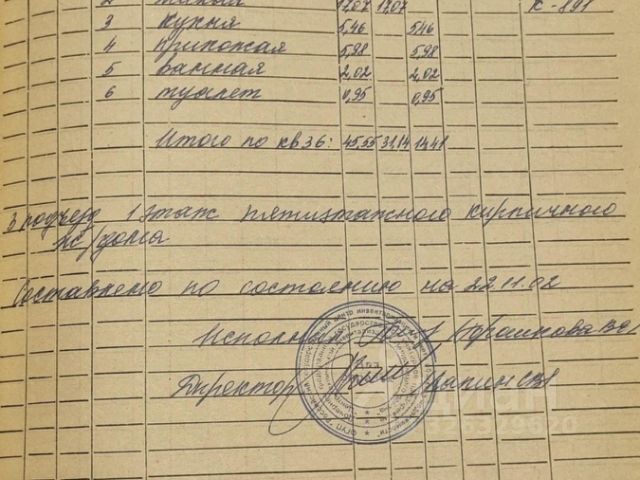 2 жилая 17,07 17,07 К-891
3 кухня 5,46 5,46
4 прихожая 5,98 5,98
5 ванная 2,02 2,02
6 туалет 0,95 0,95
Итого по кв 36: 45,55 31,14 14,41
3 подъезд 1 этаж пятиэтажного кирпичного
ж/дома
Составлено по состоянию на 22.11.02
Исполнил
Директор